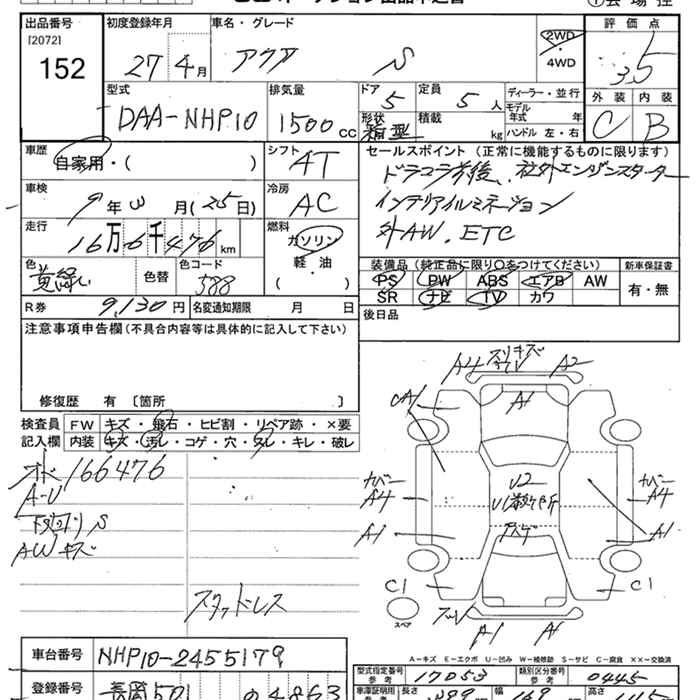 出品番号
[2072]
152
初度登録年月
27年4月
車名・グレード
アクア S
2WD
・
4WD
評価点
3.5
外装 内装
C B
型式
DAA-NHP10
排気量
1500 CC
ドア
5
定員
5人
形状
箱型
積載
kg
ディーラー・並行
モデル年式 年
ハンドル 左・右
車歴
自家用・( )
シフト
AT
セールスポイント (正常に機能するものに限ります)
ドラコラ前後、社外エンジンスターター
インテリアイルミネーション
外AW. ETC
車検
9年3月(25日)
冷房
AC
走行
16万6千476km
燃料
ガソリン
軽・油
( )
色
黄緑
色替
色コード
588
装備品 (純正品に限り○をつけてください)
新車保証書
PS PW ABS エアB AW
SR ナビ TV カワ
有・無
R券
9,130円
名変通知期限 月 日
後日品
注意事項申告欄(不具合内容等は具体的に記入して下さい)
修復歴 有 〔箇所 〕
検査員
記入欄
FW キズ・飛石・ヒビ割・リペア跡・×要
内装 キズ・汚レ・コゲ・穴・スレ・キレ・破レ
オド 166476
A-U
下回り S
AWキズ
スタッドレス
A4
スリキズ
A2
A1
A1
カバー
A4
A1
U2
カバー
A4
A1
C1
C1
スペア
A1
A1
A-キズ E-エクボ U-凹み W-補修跡 S-サビ C-腐食 ××-交換済
車台番号
NHP10-2455179
型式指定番号
参考
17053
類別区分番号
参考
0445
登録番号
長岡501
の4863
車庫証明用
長さ
399
幅
169
高さ